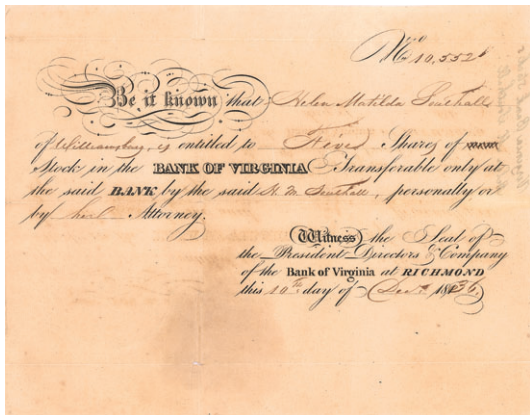 No 10,552
Be it known that Helen Matilda Southall
of Williamsburg, is entitled to Five Shares of
Stock in the BANK OF VIRGINIA Transferable only at
the said BANK by the said H. M. Southall, personally or
by her Attorney.
Witness the Seal of
the President Directors & Company
of the Bank of Virginia at RICHMOND
this 10th day of Decr. 1836